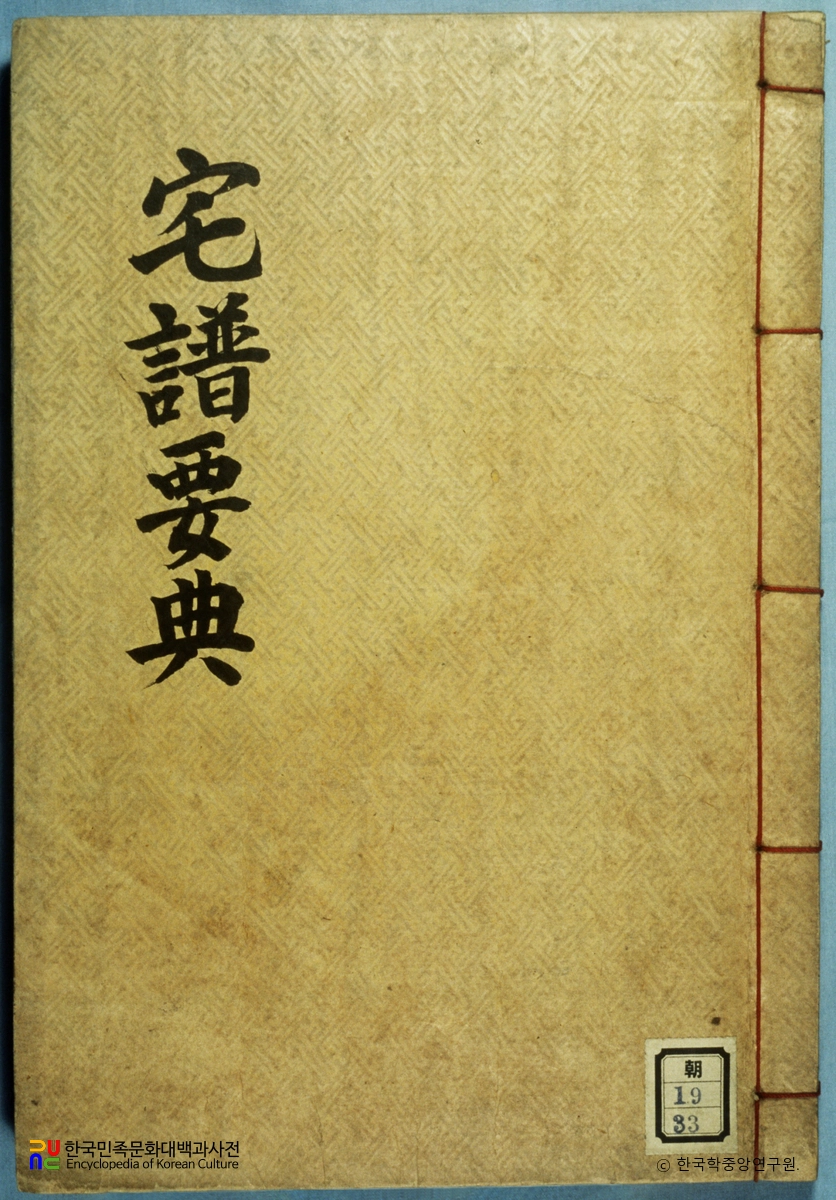 宅譜要典
朝
19
33
한국민족문화대백과사전
Encyclopedia of Korean Culture
© 한국학중앙연구원.